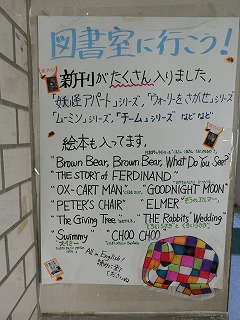 図書室に行こう!
新刊がたくさん入りました。
「妖怪アパート」シリーズ、「ウォーリーをさがせ」シリーズ
「ムーミン」シリーズ、「チーム」シリーズ などなど
絵本も入ってます。
"Brown Bear, Brown Bear, What Do You See?"
"THE STORY of FERDINAND"
"OX-CART MAN" "GOODNIGHT MOON"
"PETER'S CHAIR" "ELMER" "ぞうのエルマー"
"The Giving Tree" "The Rabbits' Wedding"
しろいうさぎとくろいうさぎ
"Swimmy" "CHOO CHOO"
スイミー
All in English!